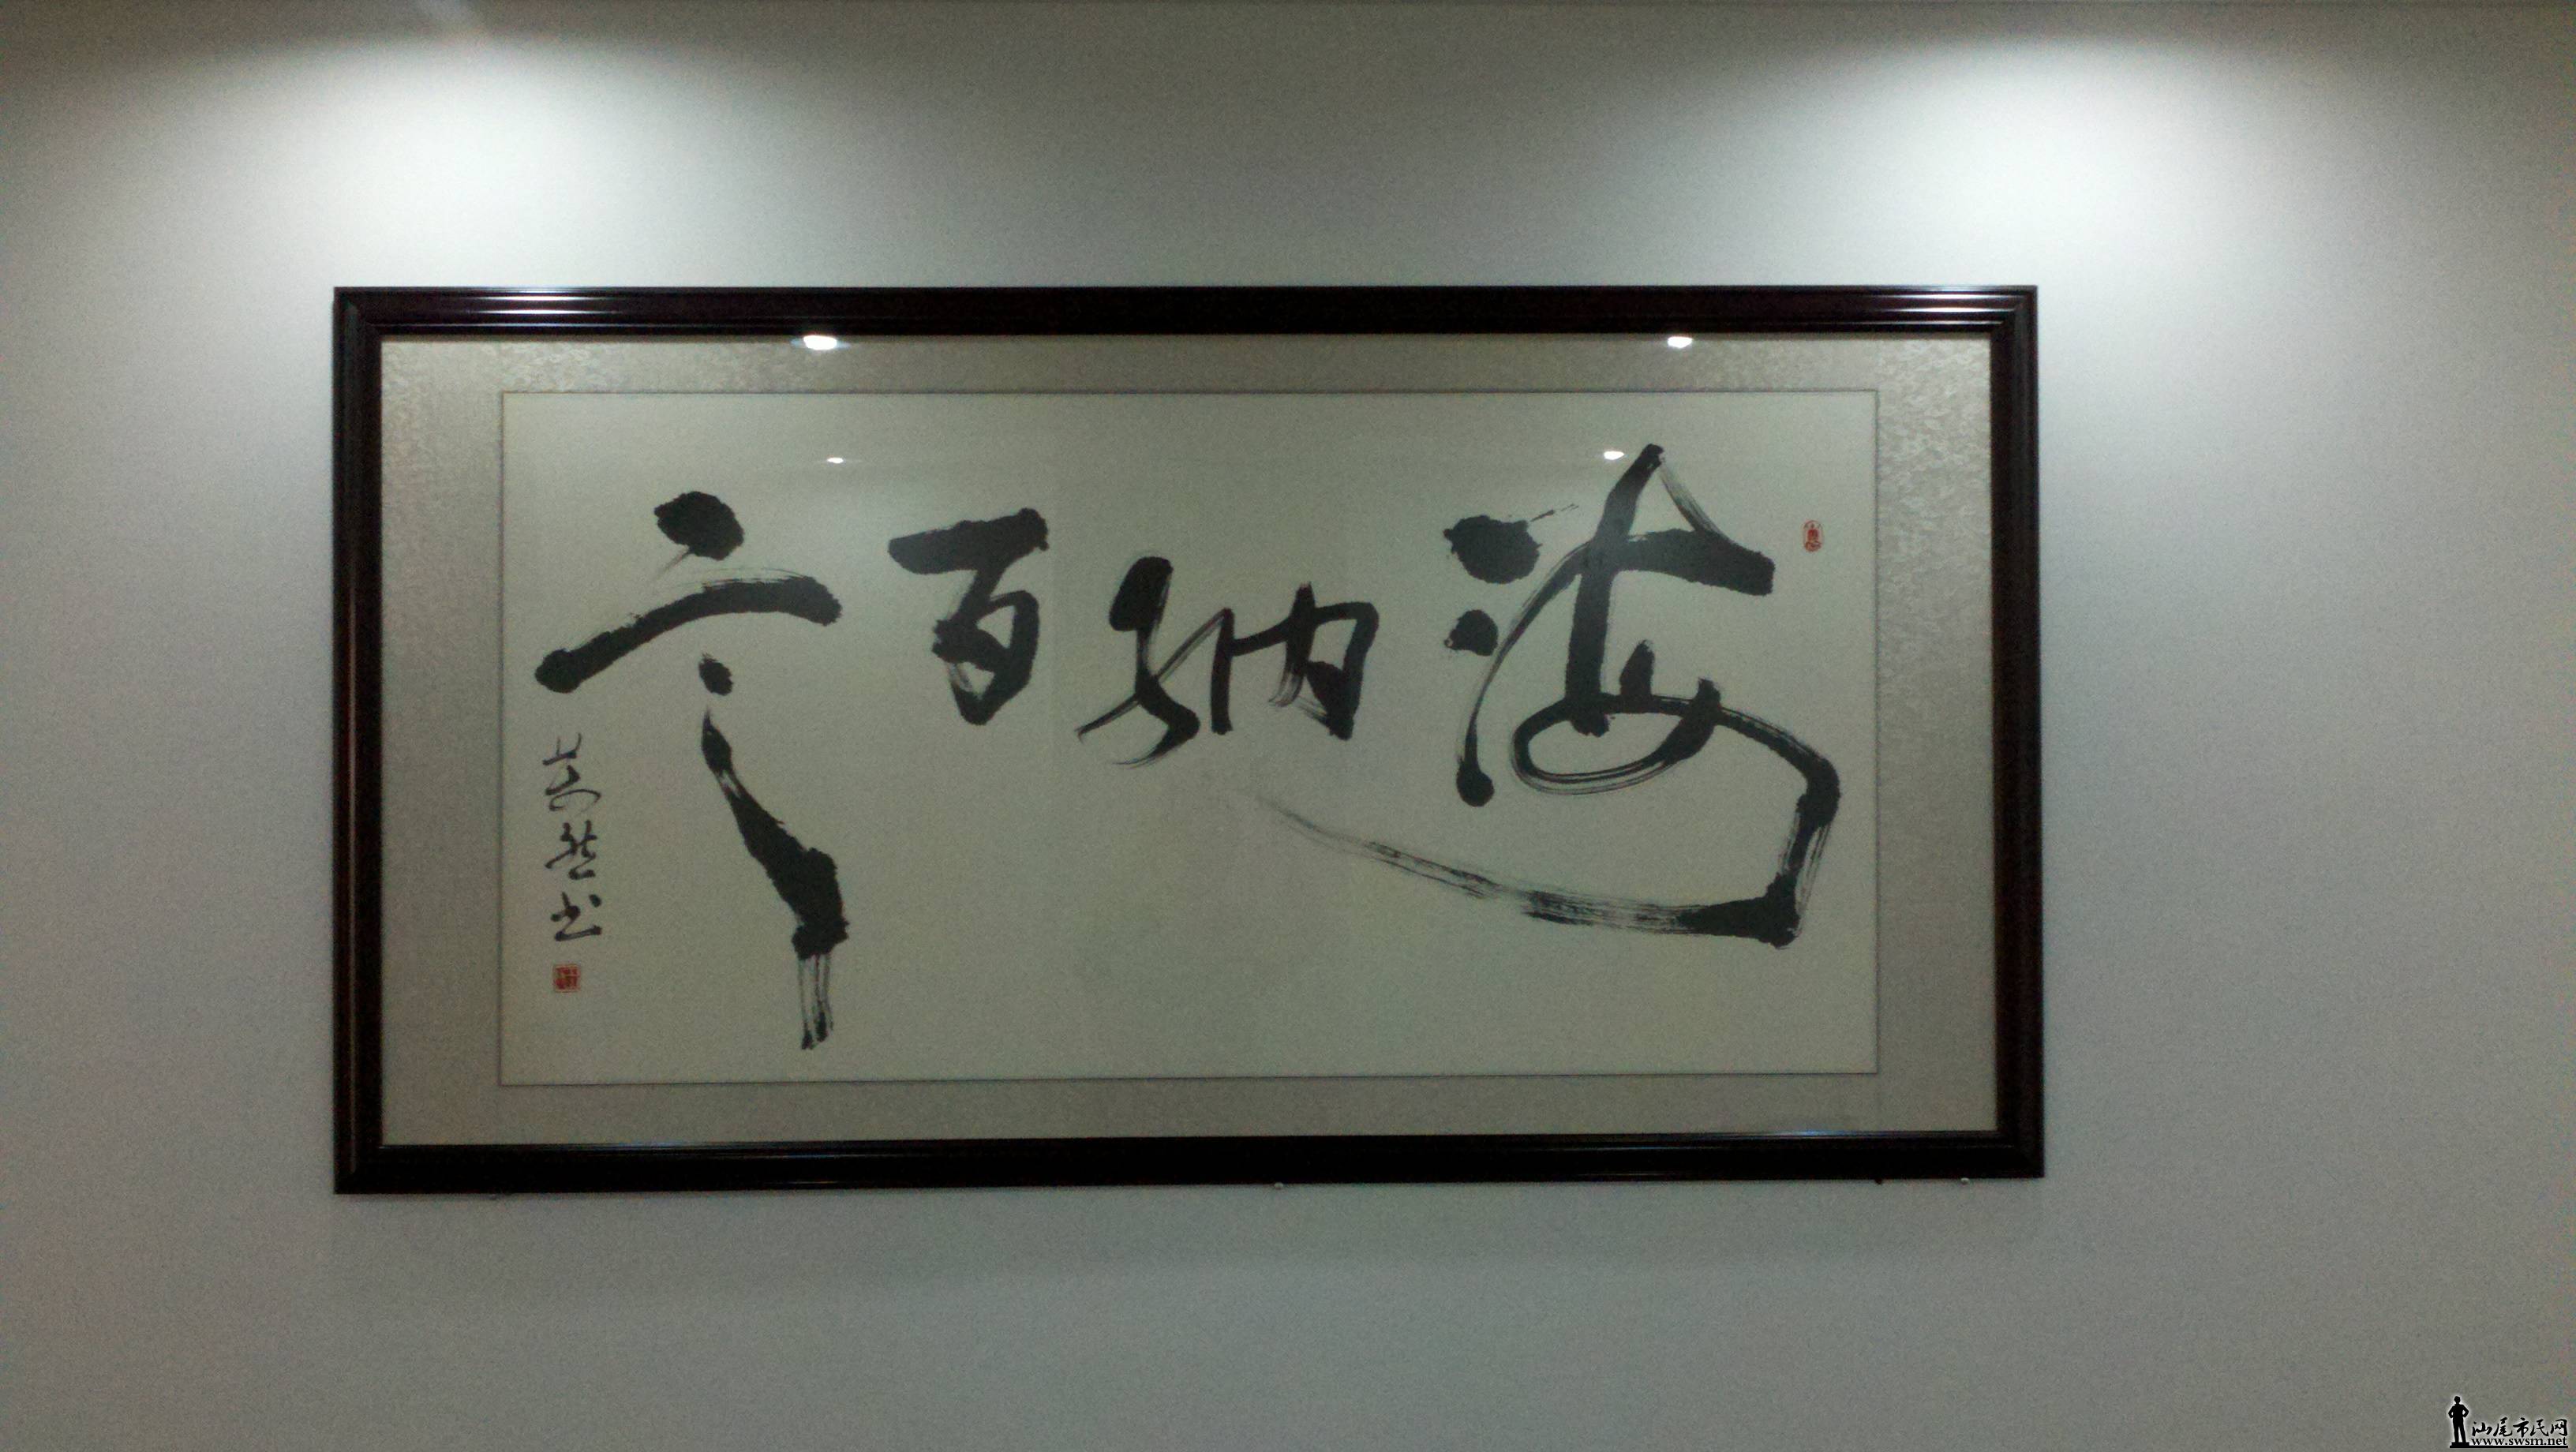 海纳百川
书
汕尾市民网
www.swsm.net